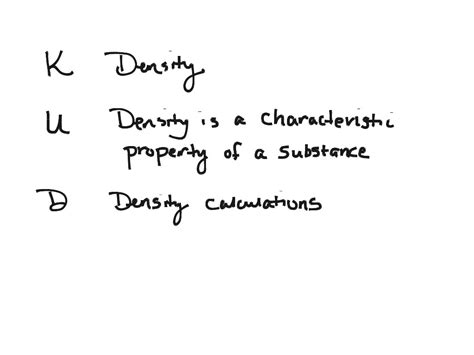 K Density
U Density is a characteristic
property of a substance
D Density calculations